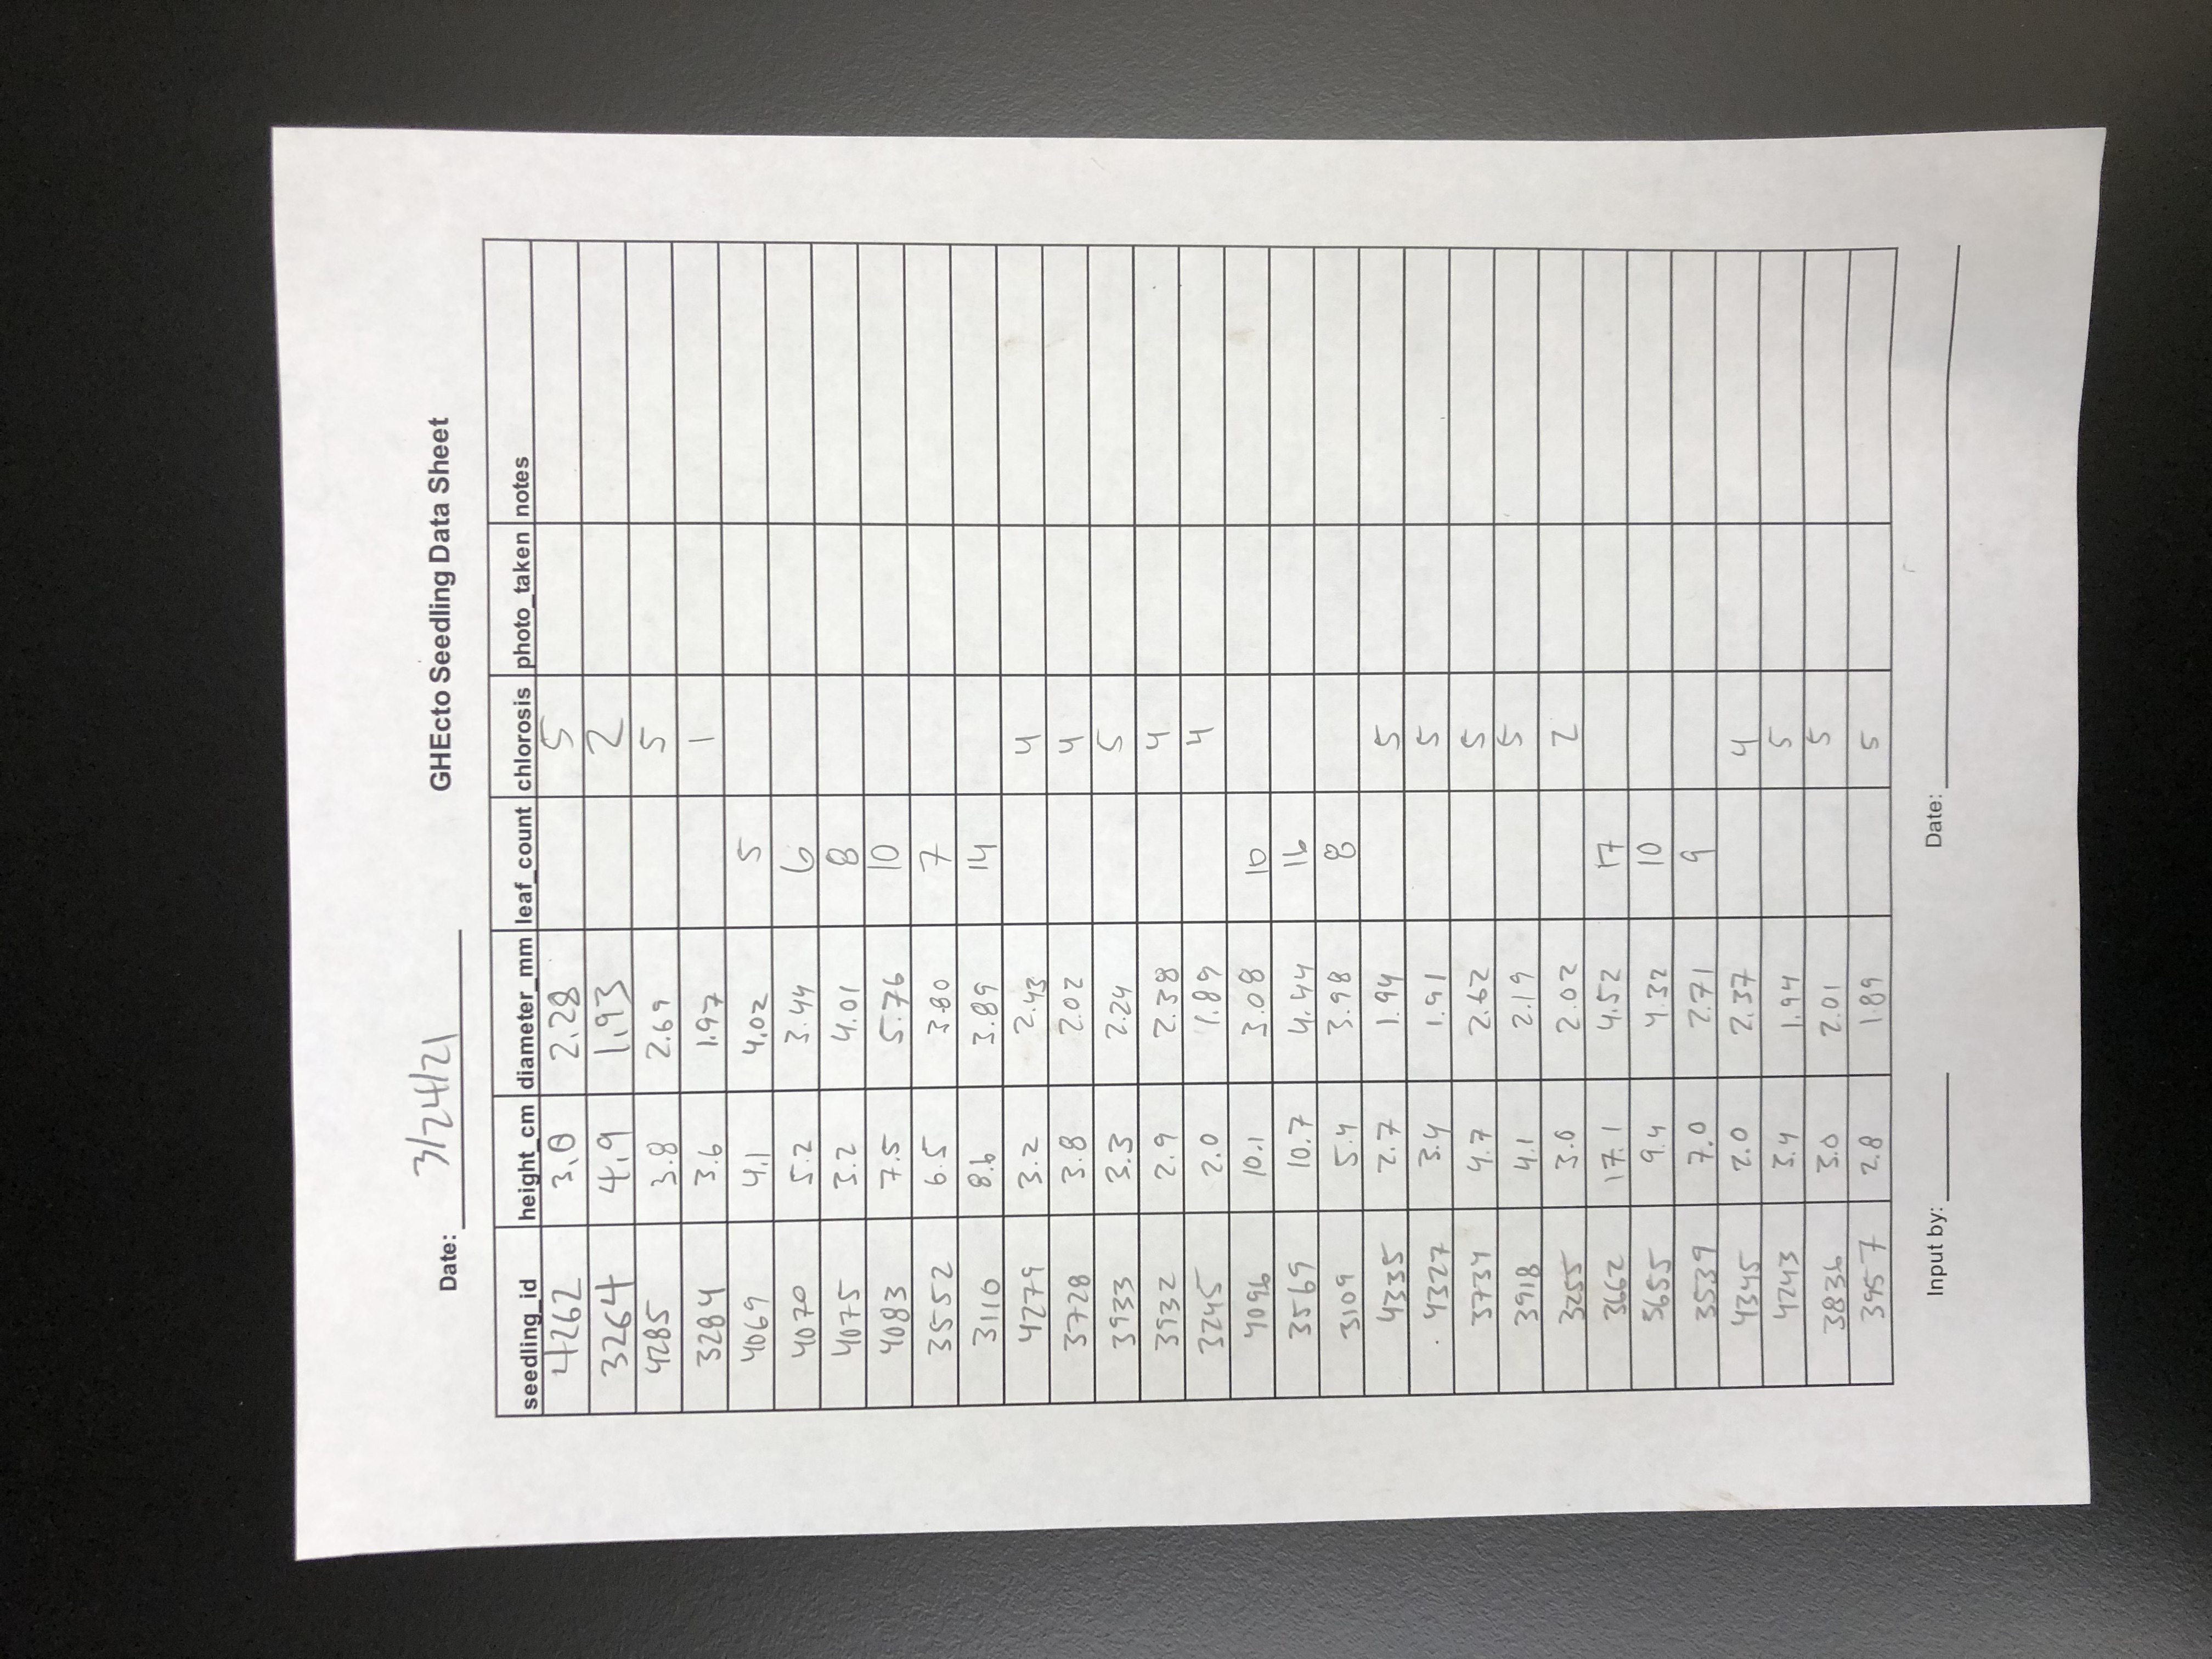 Date: 3/24/21 GHEcto Seedling Data Sheet
seedling_id height_cm diameter_mm leaf_count chlorosis photo_taken notes
4262 3.0 2.28 5
3264 4.9 1.93 2
4285 3.8 2.69 5
3284 3.6 1.97 1
4069 4.1 4.02 5
4070 5.2 3.44 6
4075 3.2 4.01 8
4083 7.5 5.76 10
3552 6.5 3.80 7
3110 8.6 3.89 14
4279 3.2 2.43 4
3728 3.8 2.02 4
3933 3.3 2.24 5
3932 2.9 2.38 4
3245 2.0 1.89 4
4096 10.1 3.08 10
3569 10.7 4.44 16
3109 5.4 3.98 8
4335 2.7 1.94 5
4327 3.4 1.91 5
3734 4.7 2.62 5
3918 4.1 2.19 5
3255 3.0 2.02 2
3662 17.1 4.52 17
3655 9.4 4.32 10
3539 7.0 2.71 9
4345 2.0 2.37 4
4243 3.4 1.94 5
3836 3.0 2.01 5
3957 2.8 1.89 5
Input by: Date: